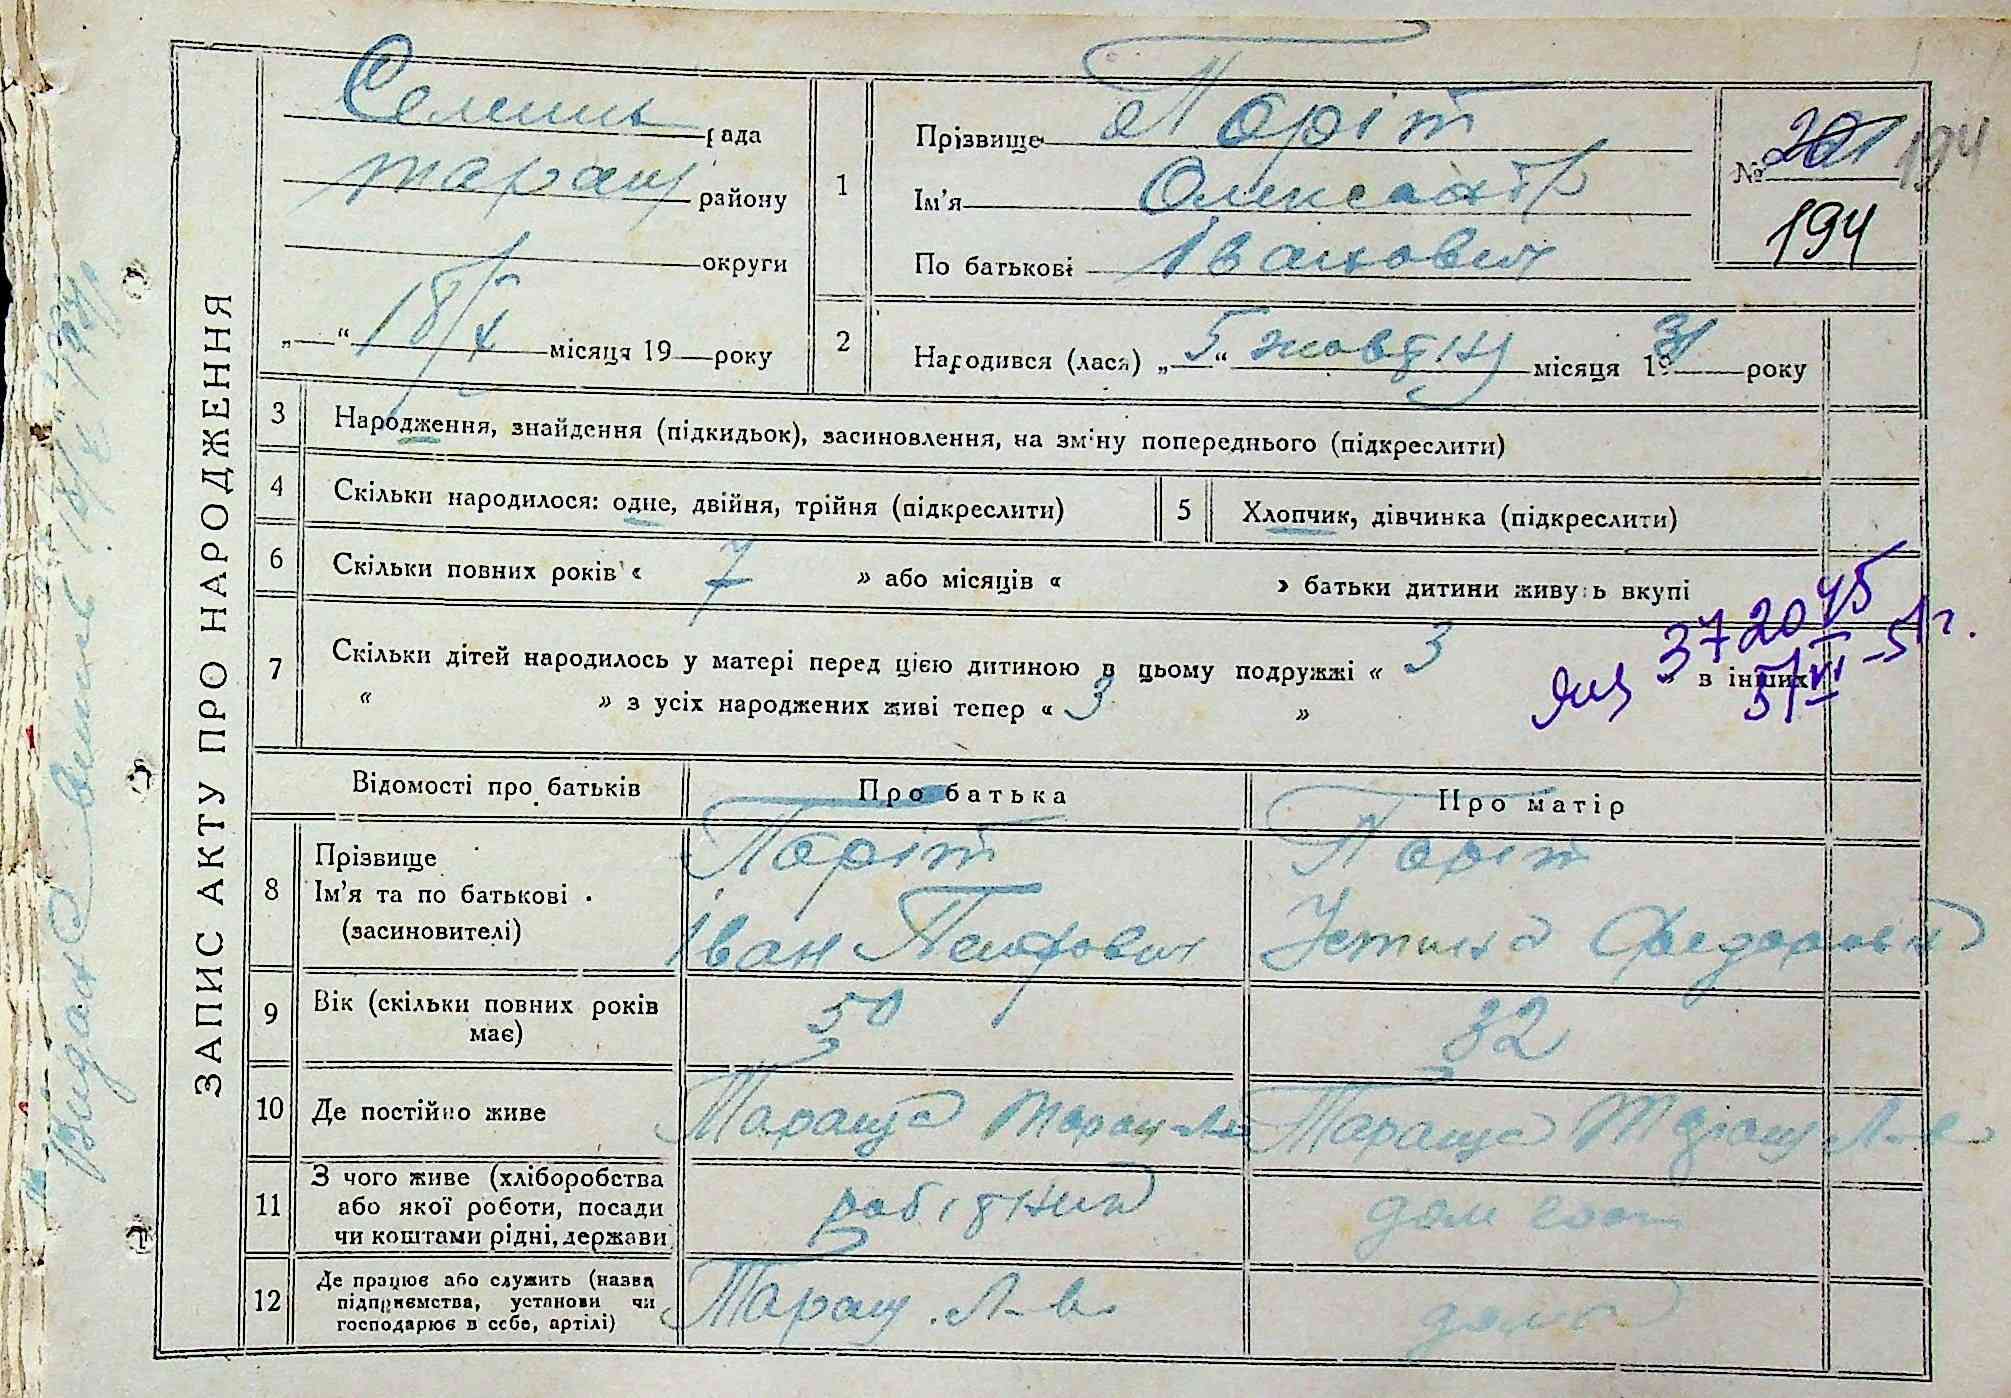 ЗАПИС АКТУ ПРО НАРОДЖЕННЯ
Селищн рада
таращ району
округи
„—“ 18/X місяця 19 — року
1 Прізвище Поріт
Ім'я Олександр
По батькові Іванович
№ 201 194
194
2 Народився (лася) „5“ жовтня місяця 1931 року
3 Народження, знайдення (підкидьок), засиновлення, на зміну попереднього (підкреслити)
4 Скільки народилося: одне, двійня, трійня (підкреслити)
5 Хлопчик, дівчинка (підкреслити)
6 Скільки повних років « 7 » або місяців « » батьки дитини живуть вкупі
7 Скільки дітей народилось у матері перед цією дитиною в цьому подружжі « 3 » в інших
« » з усіх народжених живі тепер « 3 »
372045
5/VI-51г.
Відомості про батьків
Про батька
Про матір
8 Прізвище
Ім'я та по батькові
(засиновителі)
Поріт
Іван
Поріт
Устина Федоровна
9 Вік (скільки повних років має)
50
32
10 Де постійно живе
Тараща Таращ
Тараща Таращ
11 З чого живе (хліборобства
або якої роботи, посади
чи коштами рідні, держави
робітник
дом госп
12 Де працює або служить (назва
підприємства, установи чи
господарює в себе, артілі)
Таращ.
дома